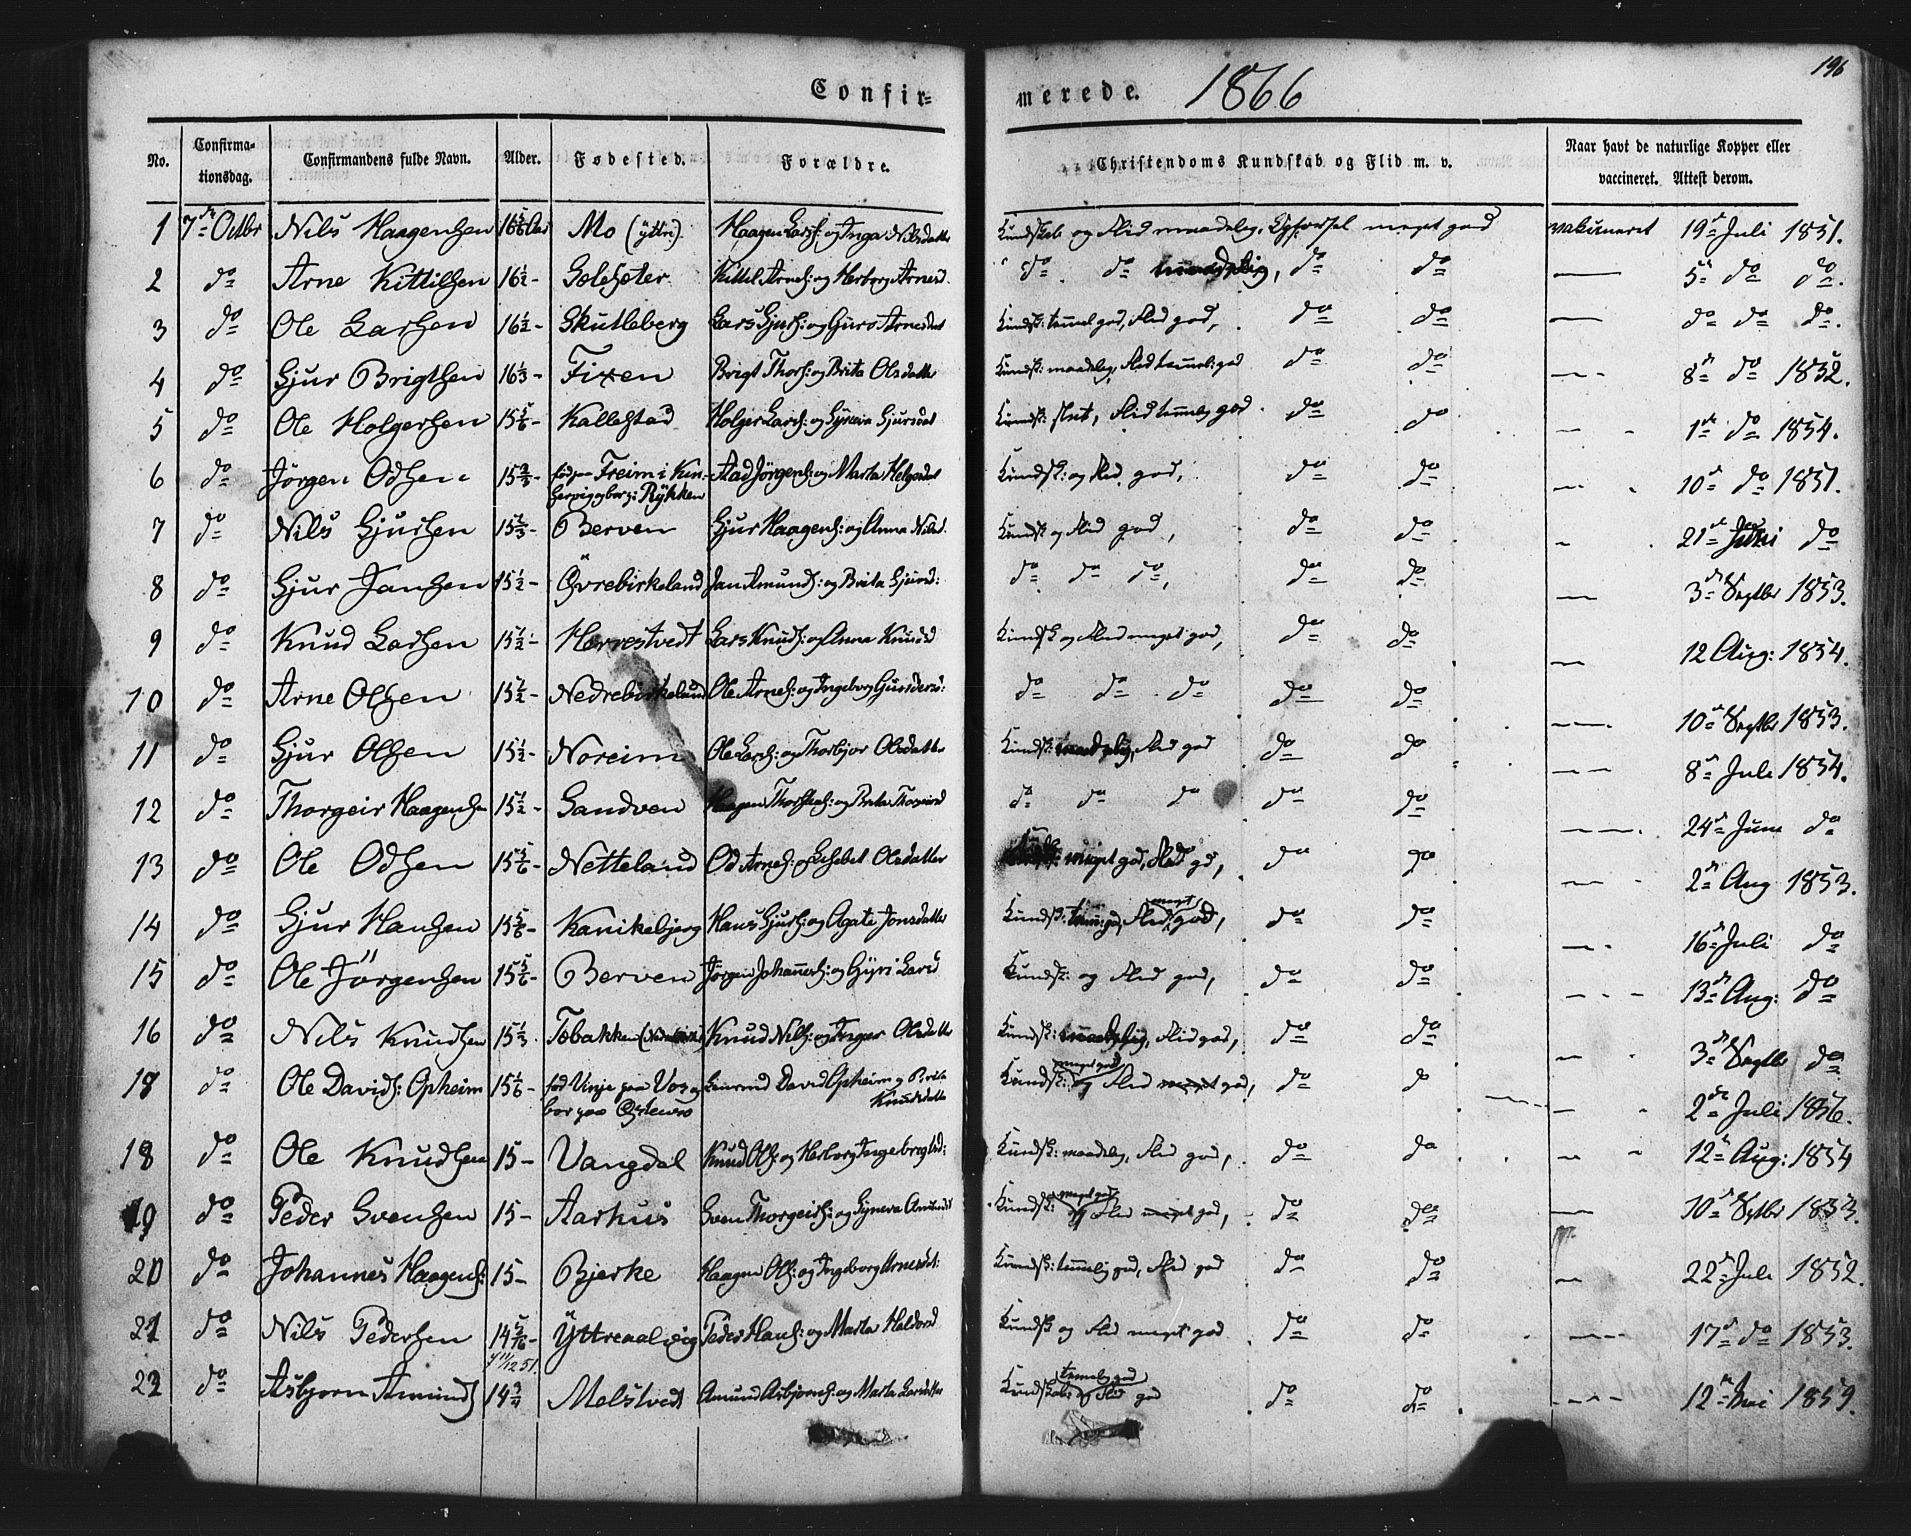 196
Confirmerede. 1866
No. Confirmationsdag. Confirmandens fulde Navn. Alder. Fødested. Forældre. Christendoms Kundskab og Flid m. v. Naar havt de naturlige Kopper eller vaccineret. Attest derom.
1 7de Octbr Nils Haagensen 16 5/6 Aar Mo (yttr:) Haagen Larss: og Inga Nilsdatter Kundskab og Flid maadelig, Opførsel meget god vakcineret 19de Juli 1851.
2 do Arne Kittilsen 16 1/2 - Kittil Arnes: og Herborg Arnesd. do do maadelig, do do — 5te do do.
3 do Ole Larsen 16 1/2 - Skutleberg Lars Gjurs: og Guro Arnesdat Kundsk: temmel god, Flid god, do do — do do do.
4 do Gjur Brigtsen 16 1/3 - Fixen Brigt Thors: og Brita Olsdatter Kundsk: maadelig, Flid temmel: god do do — 8de do 1852.
5 do Ole Holgersen 15 5/6 - Kallestad Holger Lars: og Syneva Gjursdat Kundsk: slet, Flid temmelig god. do do — 1ste do 1854.
6 do Jörgen Odsen 15 2/3 - fød paa Freim i Kinservig og borg: Rykken Aad Jörgens: og Marta Helgesdat Kundsk: og Flid god, do do — 10de do 1851.
7 do Nils Gjursen 15 2/3 - Berven Gjur Haagens: og Anna Nilsd. Kundsk og Flid god, do do — 21de do
8 do Gjur Jansen 15 1/2 - Övrebirkeland Jan Amunds: og Brita Gjursd: do do do, do do — 3de Septbr 1853.
9 do Knud Larsen 15 1/2 - Herrestvedt Lars Knuds: og Anna Knudsd Kundsk og Flid meget god, do do — 12 Aug: 1854.
10 do Arne Olsen 15 1/2 - Nedrebirkeland Ole Arnes: og Ingeborg do do do do do — 10de Septbr 1853.
11 do Gjur Olsen 15 1/2 - Noreim Ole Lars: og Thorbjør Olsdatter Kundsk: maadelig, Flid god do do — 8de Juli 1854.
12 do Thorgeir Haagensen 15 1/2 - Sandven Haagen og Brita do do do do do — 24de Juni do
13 do Ole Odsen 15 5/6 - Netteland Od Arnes: og Lisbet Olsdatter Kundsk: meget god, Flid god, do do — 2de Aug 1853.
14 do Gjur Hansen 15 5/6 - Kanikebjerg Hans Gjurs: og Agate Jonsdatter Kundsk: temm: god, Flid meget god, do do — 16de Juli do
15 do Ole Jörgensen 15 5/6 - Berven Jörgen Johannes: og Gyri Larsd Kundsk: og Flid god, do do — 13de Aug: do
16 do Nils Knudsen 15 1/3 Tobakken Knud Nils: og Inger Olsdatter Kundsk: maadelig, Flid god, do do — 3de Septbr do
17 do Ole Davids: Opheim 15 1/6 - fød Vinje paa Vos og bor paa David Opheim og Brita Knudsdatter Kundsk: meget god og Flid meget god, do do — 2de Juli 1856.
18 do Ole Knudsen 15 - Vangdal Knud Ols: og Herborg Ingebrigtsd: Kundsk: maadelig, Flid god, do do — 12te Aug: 1854
19 do Peder Svensen 15 - Aarhus Sven Thorgeirs: og Syneva Amundsd Kundsk: meget god og Flid meget god, do do — 10de Septbr 1853.
20 do Johannes Haagens: 15 - Bjerke Haagen Ols: og Ingeborg Arnesdat: Kundsk: temmelig god, Flid god do do — 22de Juli 1852.
21 do Nils Pedersen Yttreaalvig Peder Hans: og Marta Haldorsd Kundsk og Flid meget god do do — 17de do 1853.
22 do Asbjørn Amunds 14 3/4 Melstvedt Amund Asbjørns: og Marta Larsdatter Kundskab: temmelig god og Flid god do do — 12te Mai 1859.